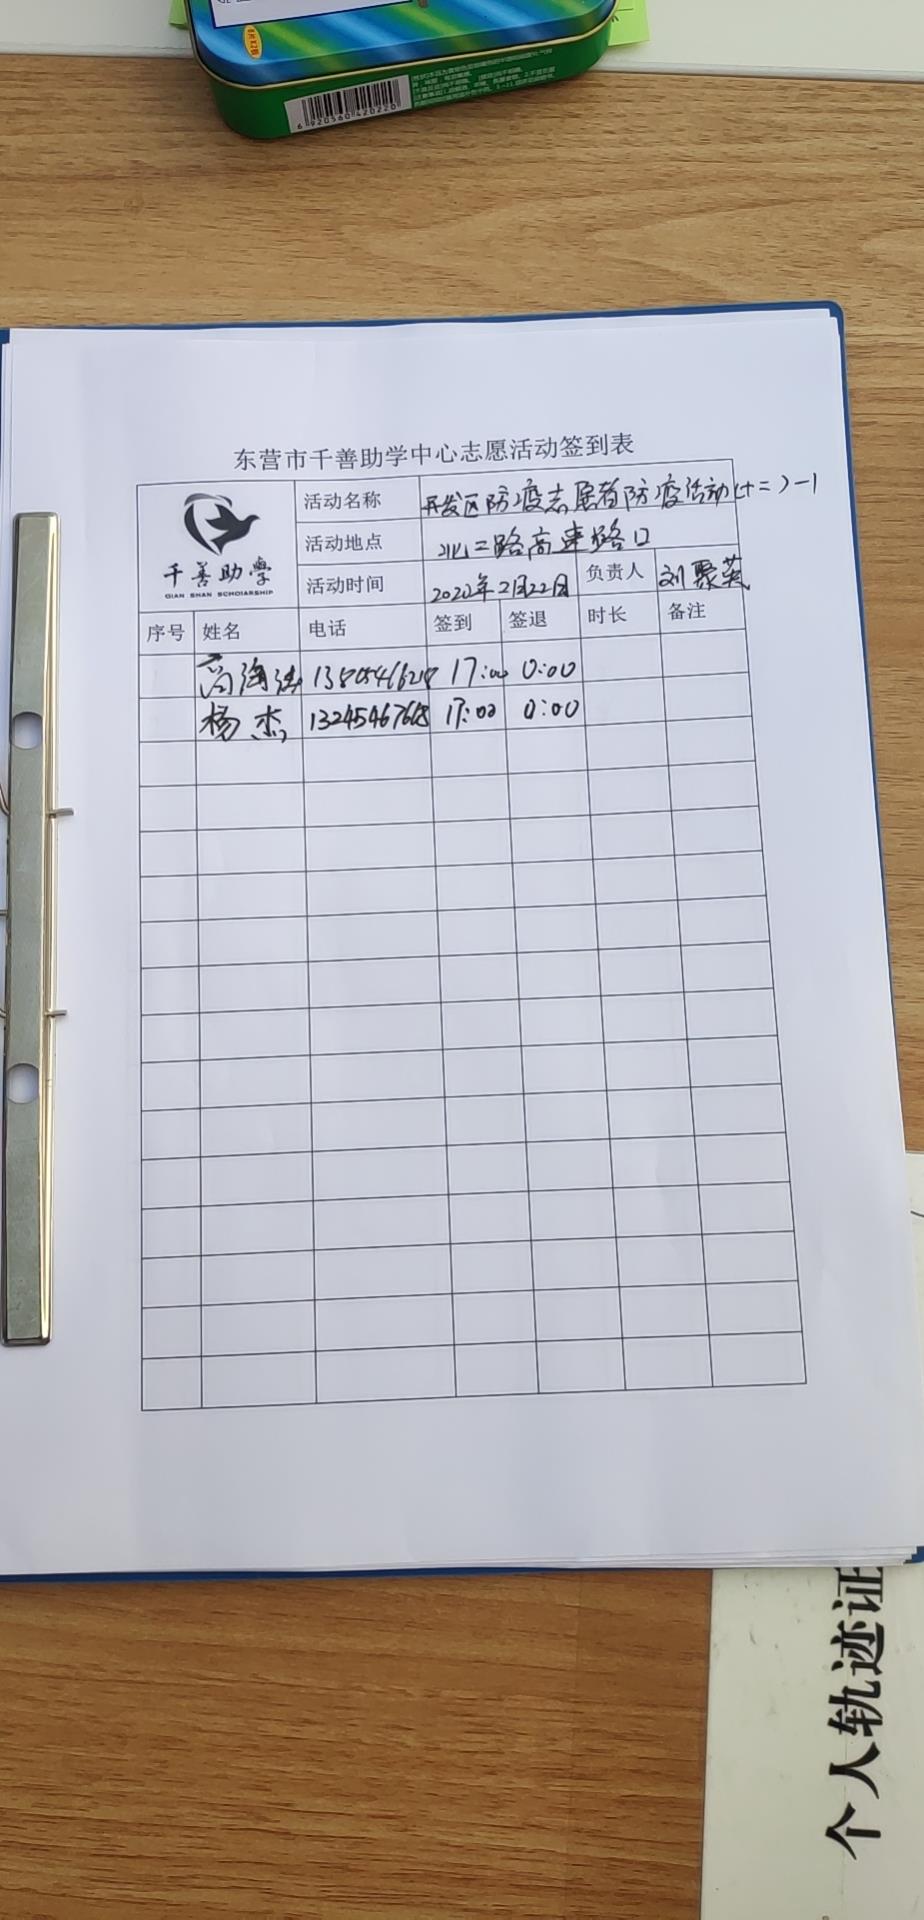 6 920560 420220
东营市千善助学中心志愿活动签到表
千善助學
QIAN SHAN SCHOLARSHIP
活动名称 开发区防疫志愿者防疫活动(十二)-1
活动地点 北二路高速路口
活动时间 2022年2月22日 负责人 刘聚英
序号 姓名 电话 签到 签退 时长 备注
17:00 0:00
杨杰 13245467618 17:00 0:00
个人轨迹证